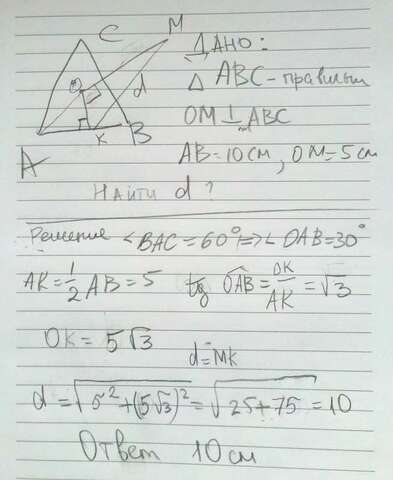 C M
ДАНО:
△ ABC - правильн
O d
OM ⊥ ABC
K B
A
AB = 10 см, OM = 5 см
Найти d ?
Решение < BAC = 60° => ∠ OAB = 30°
AK = 1/2 AB = 5 tg OAB = OK/AK = √3
OK = 5√3
d = MK
d = √(5² + (5√3)²) = √(25+75) = 10
Ответ 10 см